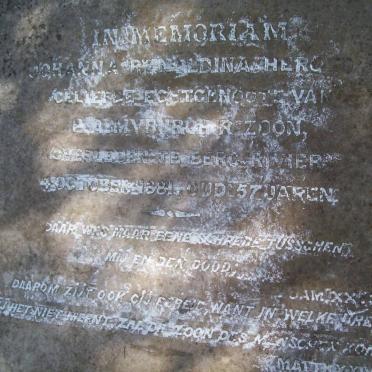 IN MEMORIAM
JOHANNA
GELIEFDE ECHTGENOOTE VAN
R. ZOON,
OVERLEDEN TE BERG-RIVIER
4 OCTOBER 1881, OUD 57 JAREN.
DAAR WAS MAAR EENE SCHREDE TUSSCHEN
MIJ EN DEN DOOD,
SAM. XX:
DAAROM ZIJT OOK GIJ BEREID, WANT IN WELKE URE
GIJ HET NIET MEENT, ZAL DE ZOON DES MENSCHEN KOM
MATTH